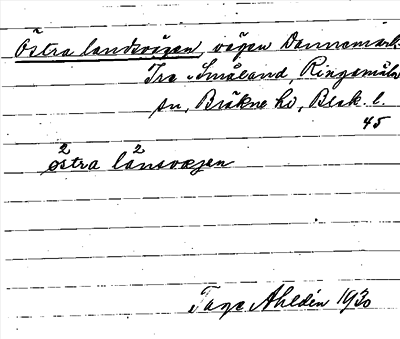 Östra landsvägen, vägen Dannemark-
Tra. Småland, Ringamåla
sn, Bräkne hd, Blek. l.
45
2 2
östra länsvægen
Tage Ahldin 1930